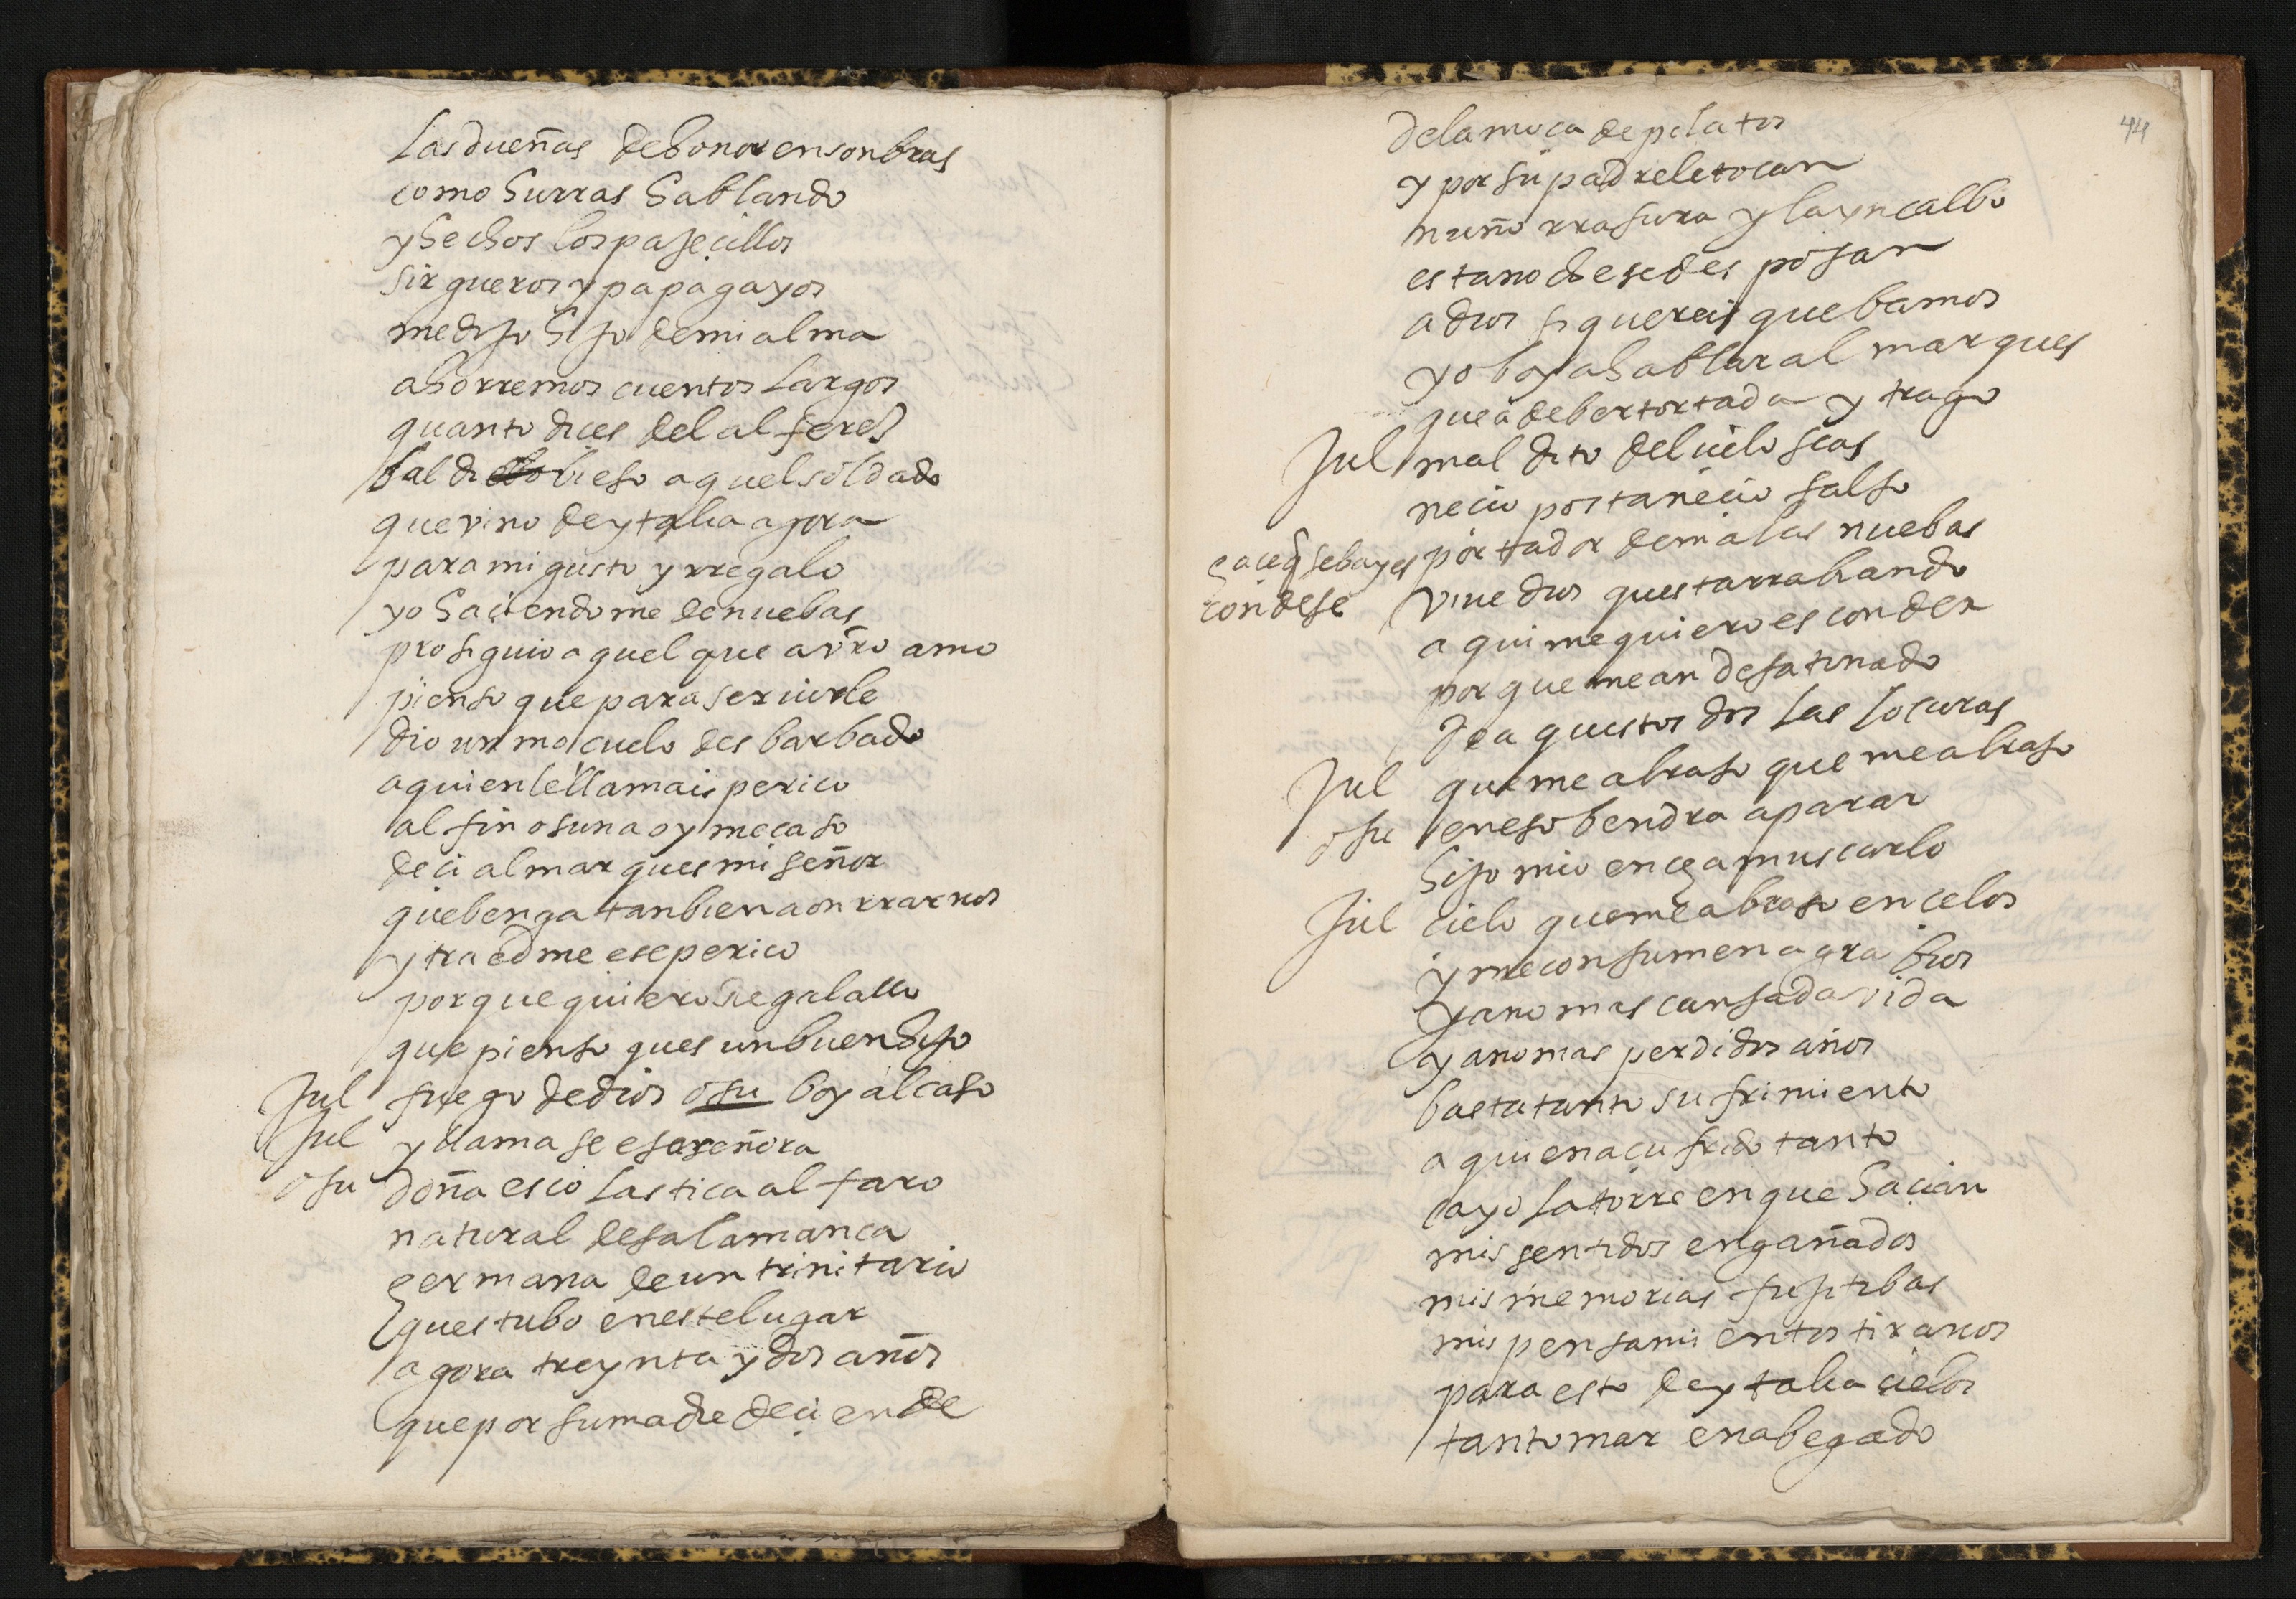 las dueñas de honor en sonbras
como hurras hablando
y hechos los pajecillos
sirgueros y papagayos
me dijo hijo de mi alma
ahorremos cuentos largos
quanto dices del alferez
baldibieso aquel soldado
que vino de ytalia agora
para mi gusto y rregalo
yo haciendome de nuebas
prosiguio aquel que a vro amo
pienso que para seruirle
dio un moçuelo desbarbado
a quien le llamais perico
al fin osuna oy me caso
deci al marques mi señor
que benga tanbien a onrrarnos
y traedme ese perico
porque quiero regalallo
que pienso ques un buen hijo
Jul fuego de dios osu boy al caso
Jul y llamase esa señora
osu doña escolastica alfaro
natural de salamanca
hermana de un trinitario
questubo en este lugar
agora treynta y dos años
que por su madre deciende
44
de la moça de pilatos
y por su padre le tocan
nuño rrasura y layn calbo
esta noche se desposan
a dios si quereis que bamos
yo boy a hablar al marques
que a de ber tortada y trago
Jul maldito del cielo seas
necio portanecio falso
portador de malas nuebas
haceq se ba y es
condese
viue dios questa rrabiando
aqui me quiero esconder
porque me an desatinado
de aquestos dos las locuras
Jul que me abraso que me abraso
osu en eso bendra a parar
hijo mio en chamuscarlo
Jul cielo que me abraso en celos
y me consumen agrabios
ya no mas cansada vida
ya no mas perdidos años
basta tanto sufrimiento
a quien a çufrido tanto
cayo la torre en que hacian
mis sentidos engañados
mis memorias fujitibas
mis pensamientos tiranos
para esto de ytalia cielos
tanto mar e nabegado